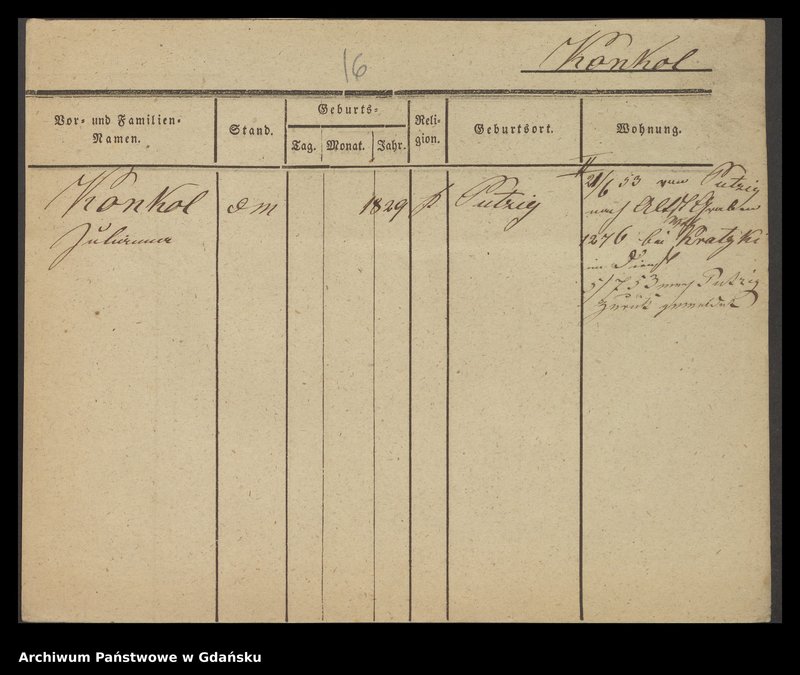 Konkol
16
Vor- und Familien-
Namen.
Stand.
Geburts-
Tag. Monat. Jahr.
Reli-
gion.
Geburtsort.
Wohnung.
Konkol
Julianna
dm
1829
k
Putzig
21/6 53 von Putzig
nach Altst Graben
1276 bei Kratzki
im Dienst
5/7 53 nach Putzig
zurück gemeldet
Archiwum Państwowe w Gdańsku